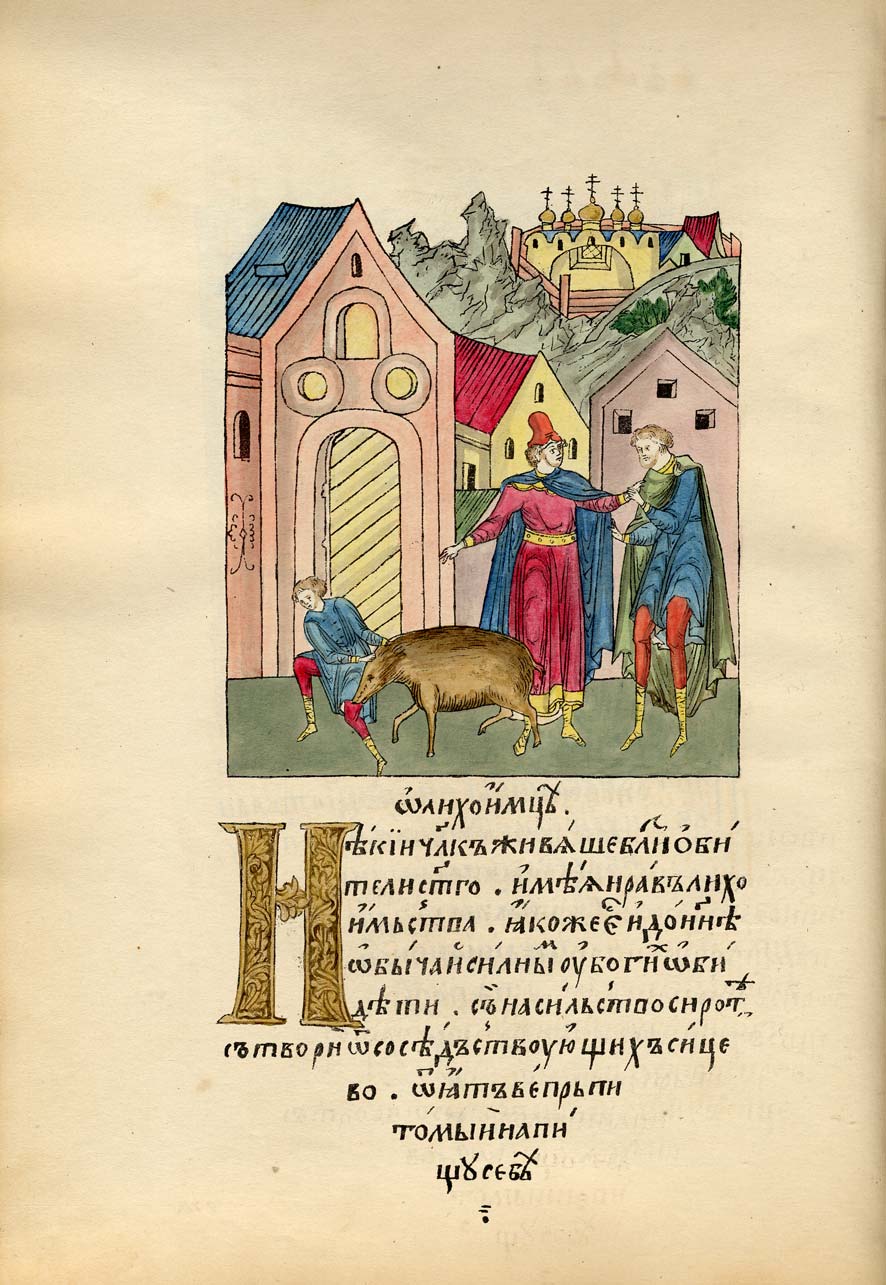 ѡлихоимцѣ.
Нѣкїи чл҃къ живѧ́ше бли́ оби́
тели ст҃го . имѣ́ѧ нра́въ лихо
и́мьства . ꙗ́коже є҆́ и до нн҃ѣ
ѡбы́чай си́лны оубоги́ ѡби́
дѣти . съ наси́льство сирот
сътвори ѿ сосѣ́дъствоую́щихъ си́це
во . ѿꙗ́тъ ве́прь пи
то́мый на пи́
щꙋ себѣ